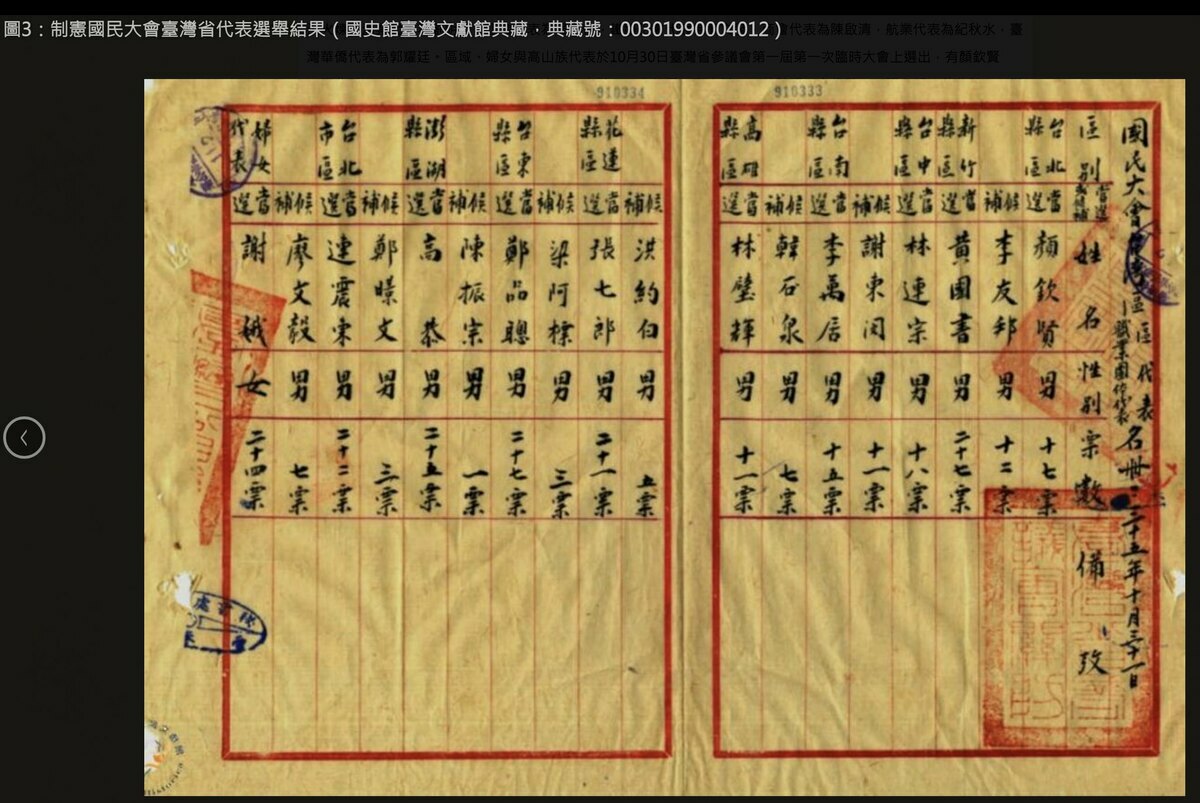 圖3：制憲國民大會臺灣省代表選舉結果（國史館臺灣文獻館典藏，典藏號：00301990004012）
代表為陳啟清，航業代表為紀秋水，臺
灣華僑代表為郭耀廷。區域、婦女與高山族代表於10月30日臺灣省參議會第一屆第一次臨時大會上選出，有顏欽賢
910334
910333
國民大會 區區代表 職業團体代表 名冊 三十五年十月三十一日
區別 當選或候補 姓名 性別 票數 備攷
台北縣區 當選 顏欽賢 男 十七票
候補 李友邦 男 十二票
新竹縣區 當選 黃國書 男 二十七票
台中縣區 當選 林連宗 男 十八票
候補 謝東閔 男 十一票
台南縣區 當選 李萬居 男 十五票
候補 韓石泉 男 七票
高雄縣區 當選 林璧輝 男 十一票
候補 洪約白 男 五票
花蓮縣區 當選 張七郎 男 二十一票
候補 梁阿標 男 三票
台東縣區 當選 鄭品聰 男 二十七票
候補 陳振宗 男 一票
澎湖縣區 當選 高恭 男 二十五票
候補 鄭暻文 男 三票
台北市區 當選 連震東 男 二十二票
候補 廖文毅 男 七票
婦女代表 當選 謝娥 女 二十四票